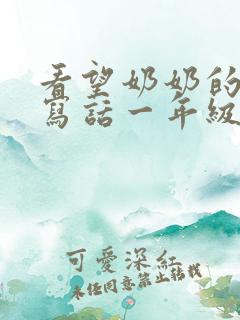 看望奶奶的
寫話一年級
可愛深紅
未经同意禁止转载